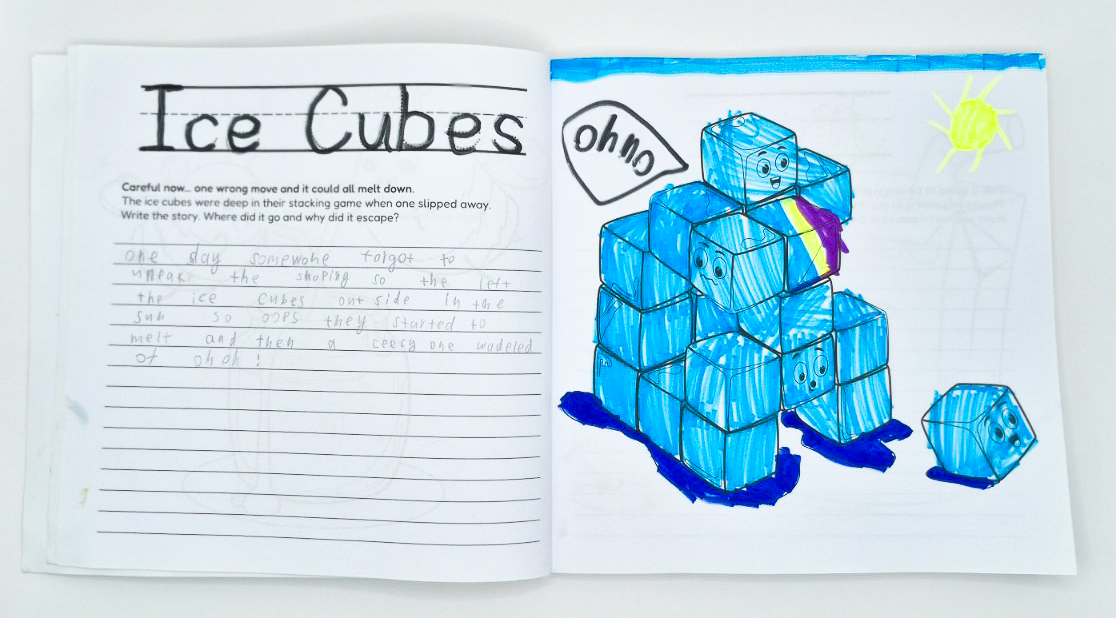 Ice Cubes
Careful now... one wrong move and it could all melt down.
The ice cubes were deep in their stacking game when one slipped away.
Write the story. Where did it go and why did it escape?
one day somewone forgot to
unpak the shoping so the left
the ice cubes out side in the
sun so oops they started to
melt and then a ceecy one wadeled
of oh oh !
oh no